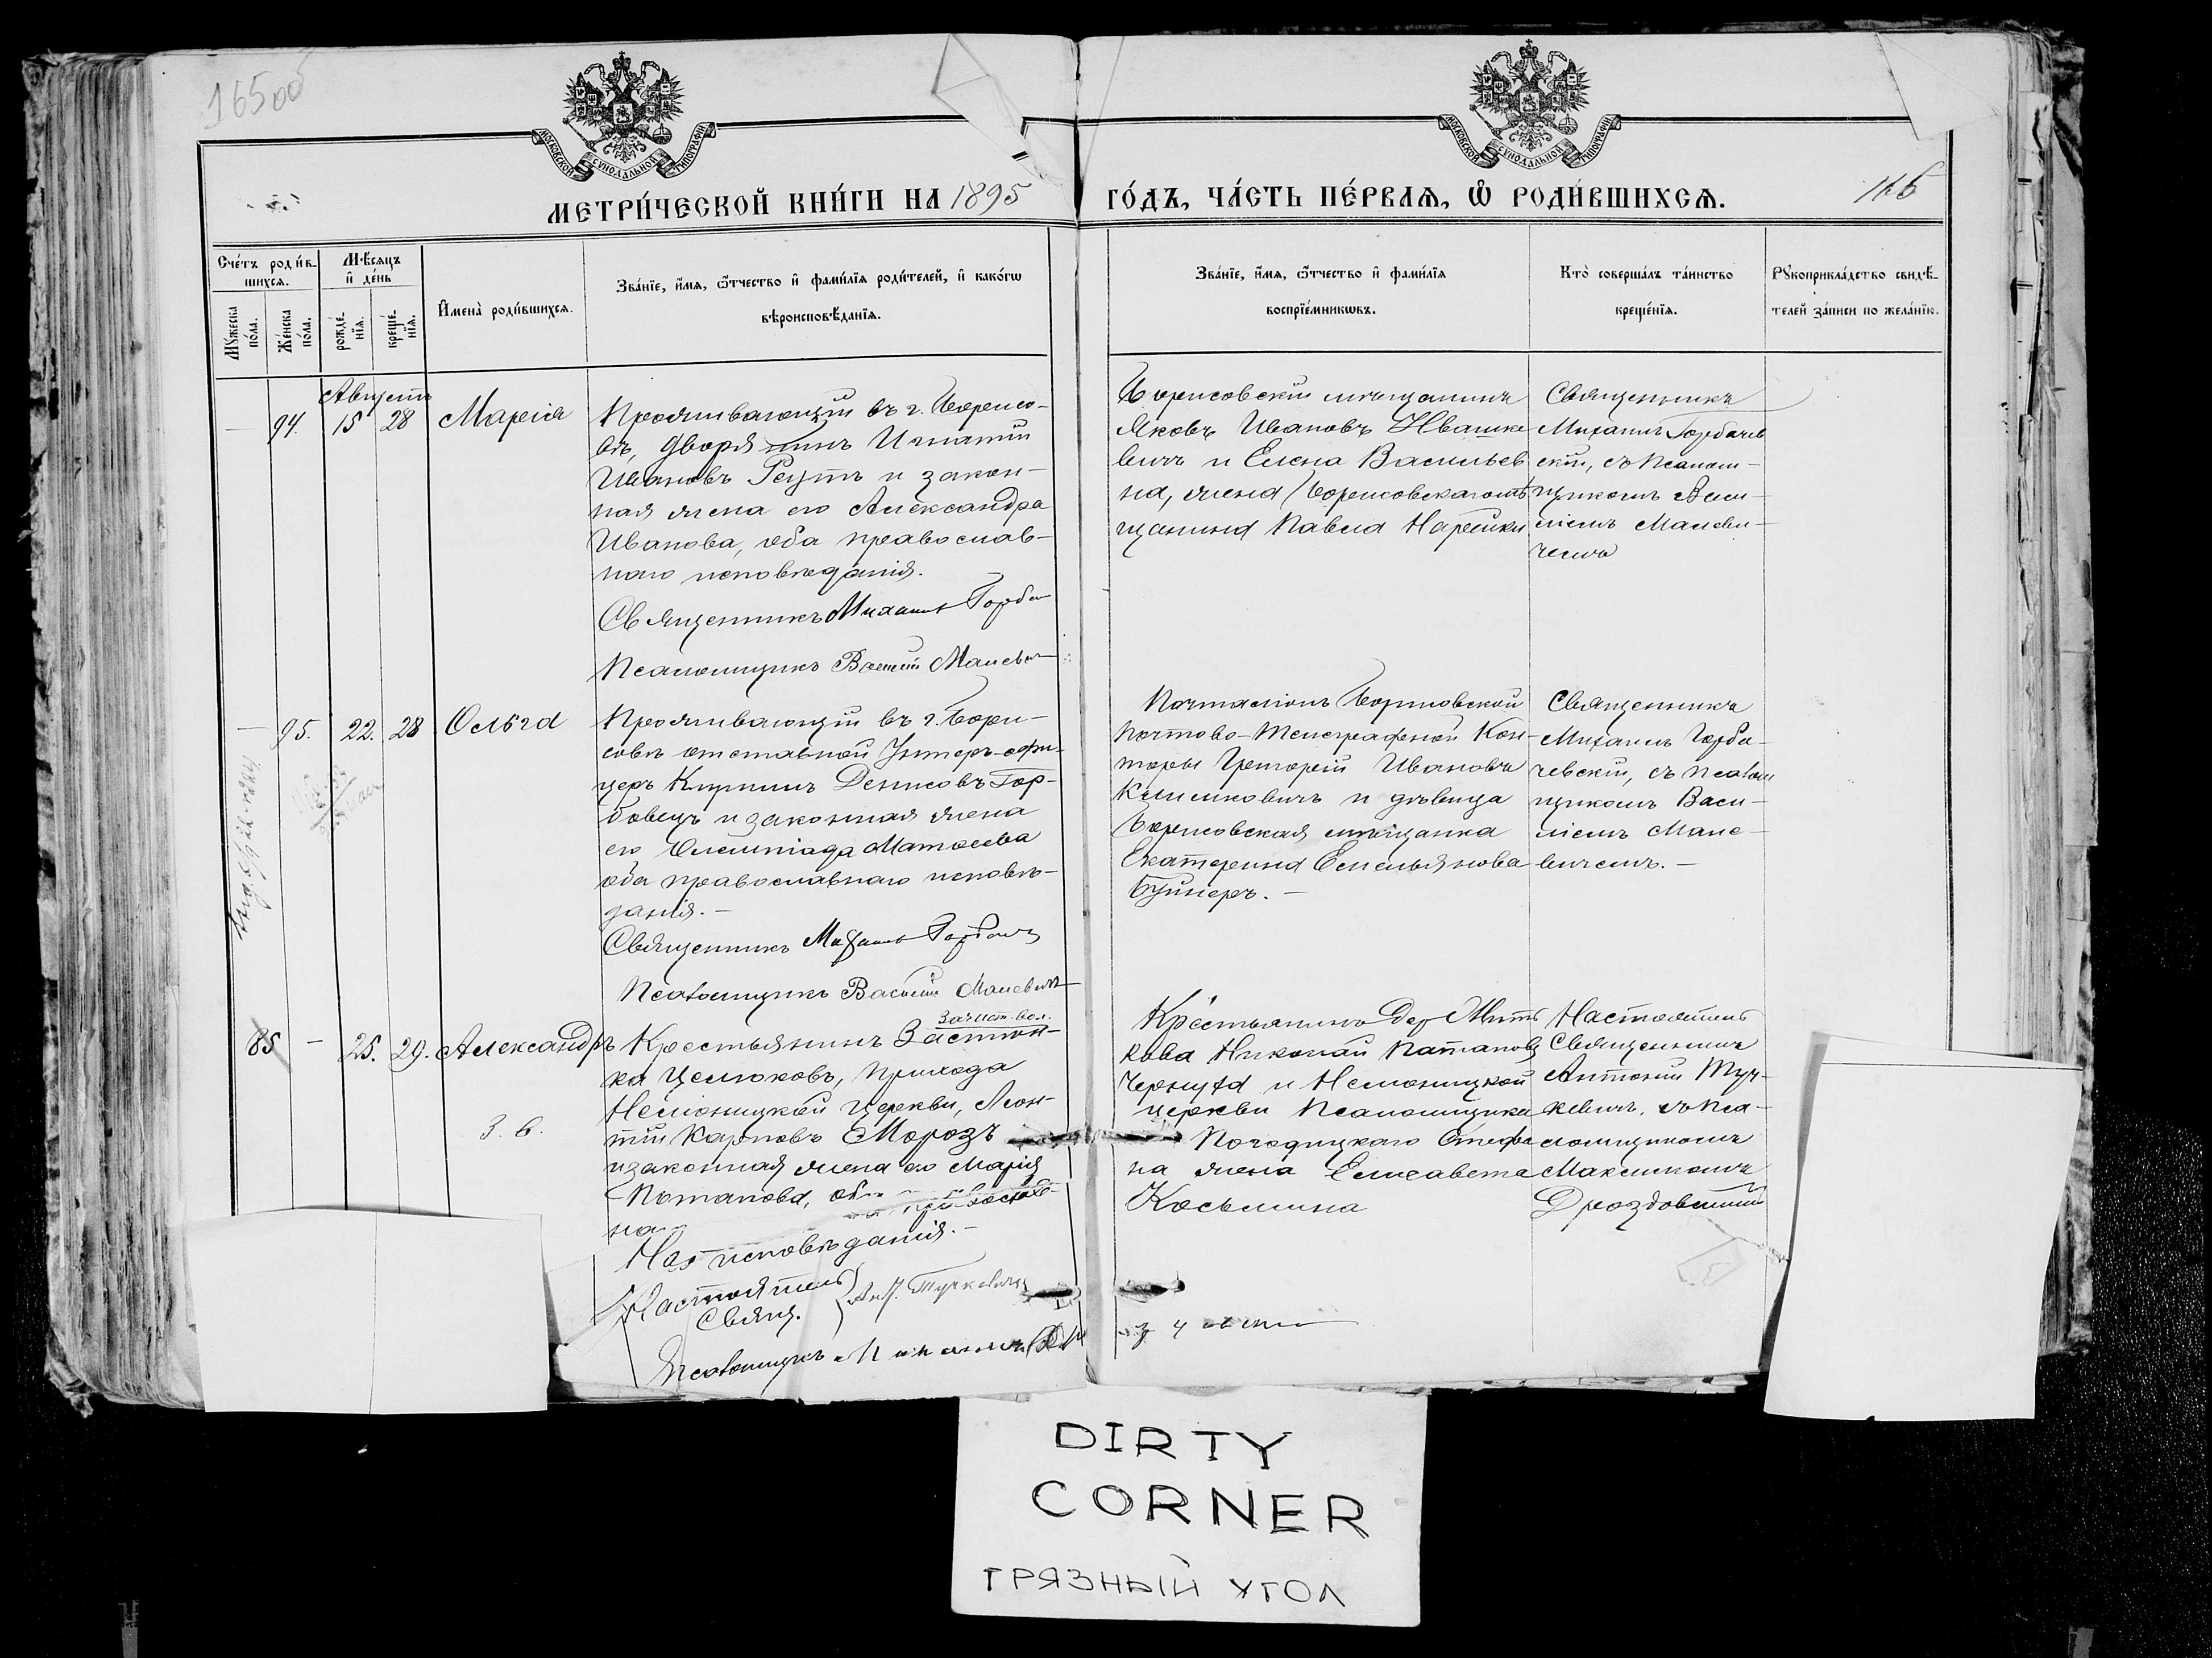 16500
МОСКОВСКОЙ СѴНОДАЛЬНОЙ ТИПОГРАФІИ
МОСКОВСКОЙ СѴНОДАЛЬНОЙ ТИПОГРАФІИ
МЕТРИ́ЧЕСКОЙ КНИ́ГИ НА 1895
ГО́ДЪ, ЧА́СТЬ ПЕ́РВАѦ, Ѽ РОДИ́ВШИХСѦ.
Сче́тъ роди́в-
шихсѧ.
Мꙋжеска
по́ла.
Же́нска
по́ла.
М҄ѣсѧцъ
и҆ де́нь
рожде́-
нїѧ.
креще́-
нїѧ.
И҆мена̀ роди́вшихсѧ.
Зва́нїе, и҆́мѧ, ѻ҆́тчество и҆ фами́лїѧ роди́телей, и҆ како́гѡ
вѣроисповѣ́данїѧ.
Зва́нїе, и҆́мѧ, ѻ҆́тчество и҆ фами́лїѧ
воспрїе́мникѡвъ.
Кто̀ соверша́лъ та́инство
креще́нїѧ.
Рꙋкоприкла́дство свидѣ́-
телей за́писи по жела́нїю.
Августъ
— 94. 15 28 Марія
Проживающій въ г. Борисо-
вѣ, дворянинъ Игнатій
Ивановъ Реутъ и закон-
ная жена его Александра
Иванова, оба православ-
наго исповѣданія.
Священникъ Михаилъ
Псаломщикъ Василій Малевич
Борисовскій мѣщанинъ
Яковъ Ивановъ Ивашке
вичъ и Елена Васильев
на, жена Борисовскаго мѣ
щанина Павла Нарейки
Священникъ
Михаилъ Горбачев
скій, съ псалом-
щикомъ Васи-
ліемъ Малеви-
чемъ
— 95. 22. 28 Ольга
Проживающій въ г. Бори-
совѣ отставной Унтеръ-офи-
церъ Кириллъ Денисовъ Гор-
бовецъ и законная жена
его Олимпіада Матѳеева
оба православнаго исповѣ-
данія. —
Священникъ Михаилъ
Псаломщикъ Василій Малевич
Почталіонъ Борисовской
Почтово-Телеграфной Кон-
торы Григорій Ивановъ
Климковичъ и дѣвица
Борисовская мѣщанка
Екатерина Емельянова
Священникъ
Михаилъ Горба-
чевскій, съ псалом
щикомъ Васи-
ліемъ Мале-
вичемъ. —
85 — 25. 29. Александръ
З. б.
Зачист. вол.
Крестьянинъ Застѣн-
ка Целюковъ, прихода
Неманицкой церкви, Леон-
тій Карповъ Морозъ
и законная жена его Марія
Потапова, оба православ-
на-
го исповѣданія. —
Настоятель
Свящ. Ант. Туркевич
Псаломщикъ
Крестьянинъ дер.
Николай Потаповъ
Чернуха и Неманицкой
церкви Псаломщика
Стефа
на жена Елисавета
Косьмина
Настоятель
Священникъ
Антоній Тур-
кевичъ, съ пса-
ломщикомъ
Максимомъ
DIRTY
CORNER
ГРЯЗНЫЙ УГОЛ